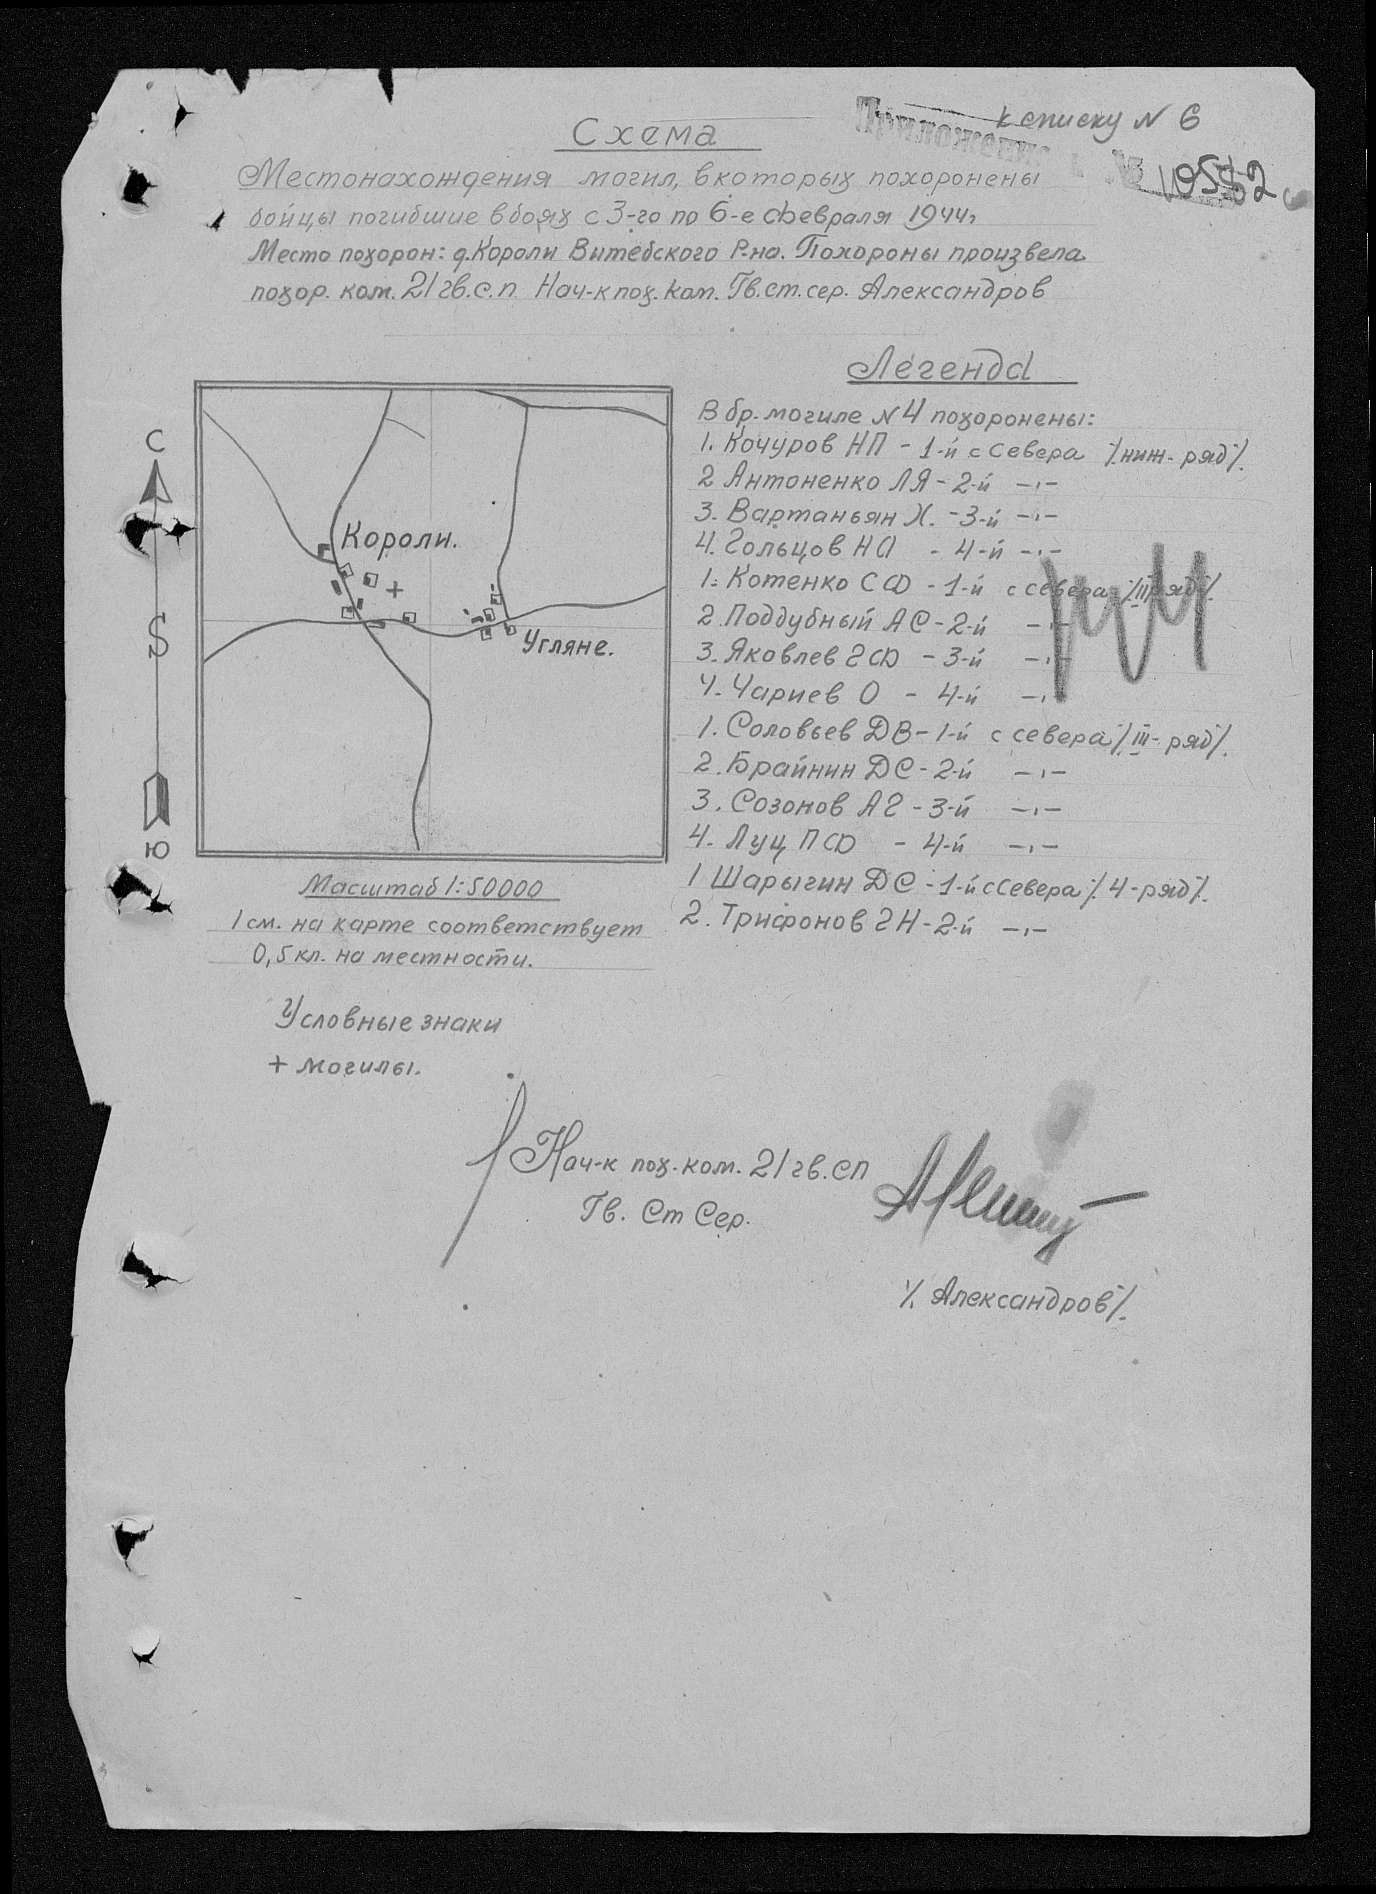 к списку N 6
Приложение № 10552
Схема
Местонахождения могил, в которых похоронены
бойцы погибшие в боях с 3-го по 6-е февраля 1944г
Место похорон: д. Короли Витебского Р-на. Похороны произвела
похор. ком. 21 гв. с. п Нач-к пох. ком. Гв. ст. сер. Александров
С
S
Ю
Короли.
Угляне.
Масштаб 1:50000
1 см. на карте соответствует
0,5 кл. на местности.
Условные знаки
+ могилы.
Легенда
В бр. могиле N 4 похоронены:
1. Кочуров НП - 1-й с севера /ниж. ряд/.
2 Антоненко ЛЯ - 2-й -"-
3. Вартаньян Х. - 3-й -"-
4. Гольцов НА - 4-й -"-
1. Котенко СФ - 1-й с севера /II ряд/.
2. Поддубный АС - 2-й -"-
3. Яковлев ГФ - 3-й -"-
4. Чариев О - 4-й -"-
1. Соловьев ДВ - 1-й с севера /III - ряд/.
2. Брайнин ДС - 2-й -"-
3. Созонов АГ - 3-й -"-
4. Луц ПФ - 4-й -"-
1 Шарыгин ДС - 1-й с севера /4 - ряд/.
2. Трифонов ГН - 2-й -"-
Нач-к пох. ком. 21 гв. сп
Гв. Ст Сер.
/Александров/.